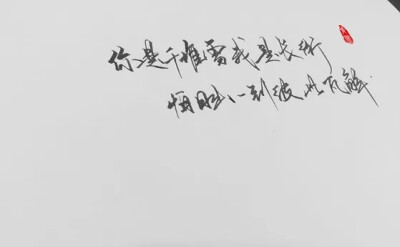 你是千堆雪我是长街
怕日出一到彼此瓦解